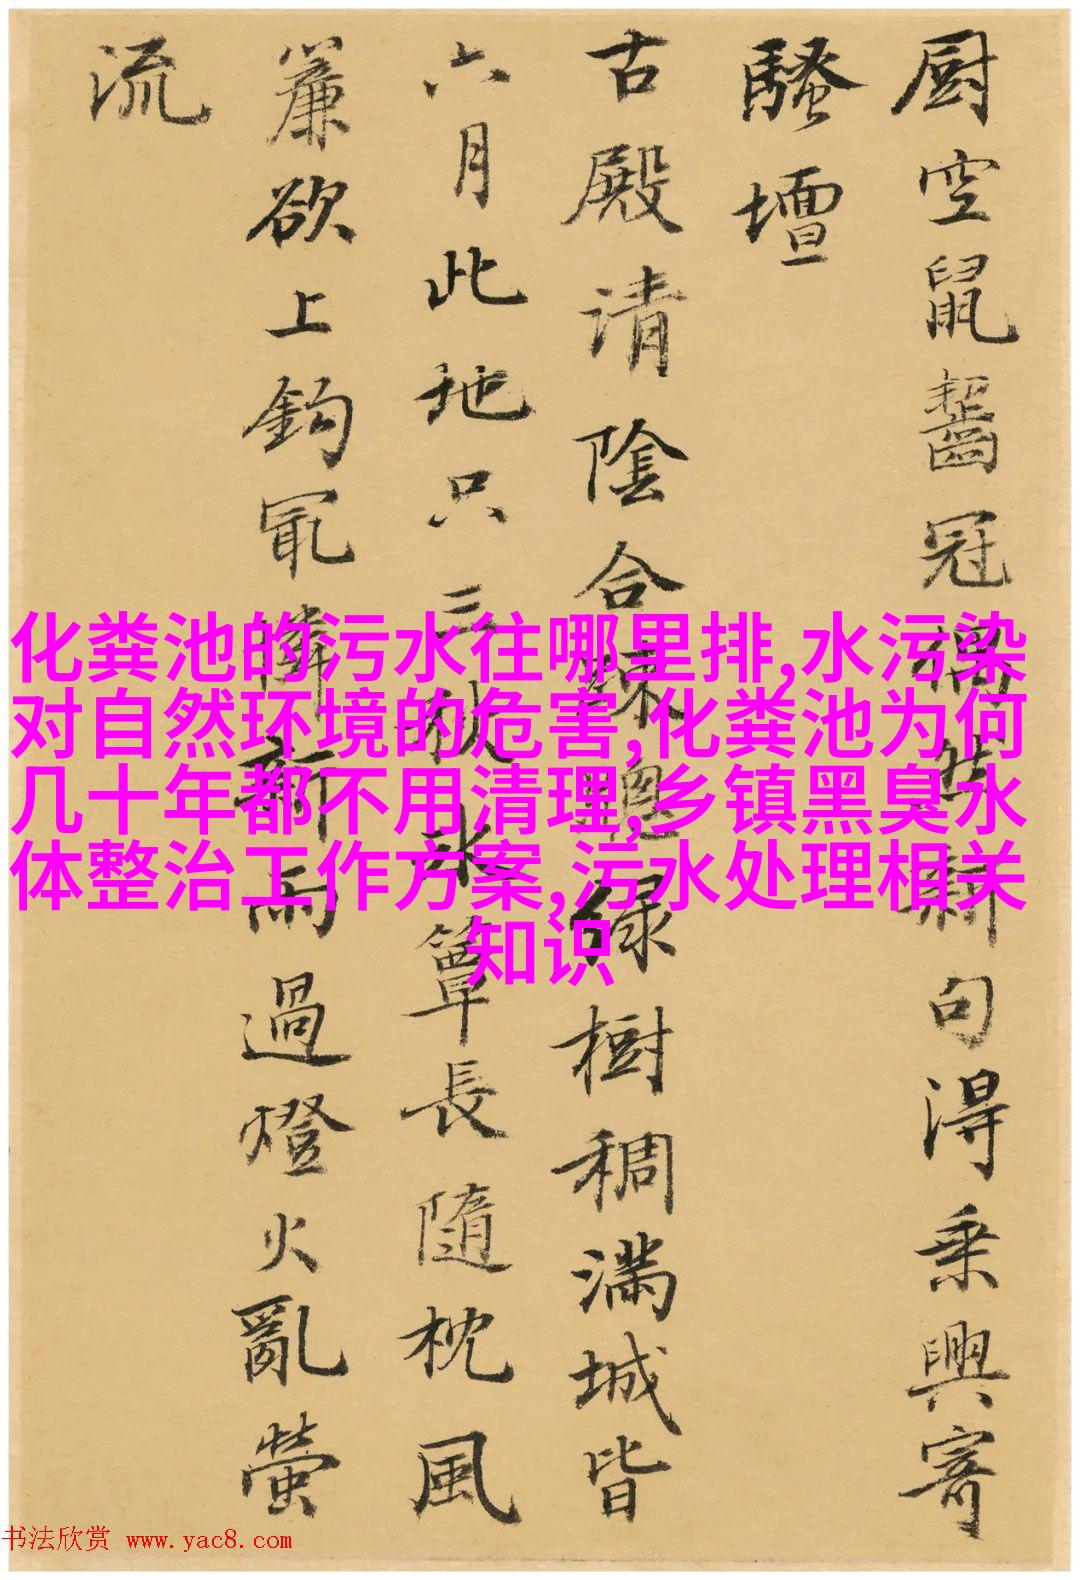 厨空鼠齧冠得乘興寄
騷壇
古殿清陰合綠樹稠滿城皆
六月此地只三秋簟長隨枕風
簾欲上鈎最憐新雨過燈火亂螢
流
化粪池的污水往哪里排,水污染
对自然环境的危害,化粪池为何
几十年都不用清理,乡镇黑臭水
体整治工作方案,污水处理相关
知识
书法欣赏 www.yac8.com